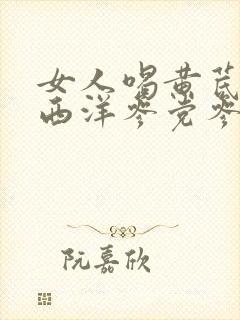 女人喝黄芪
西洋参党参
阮嘉欣